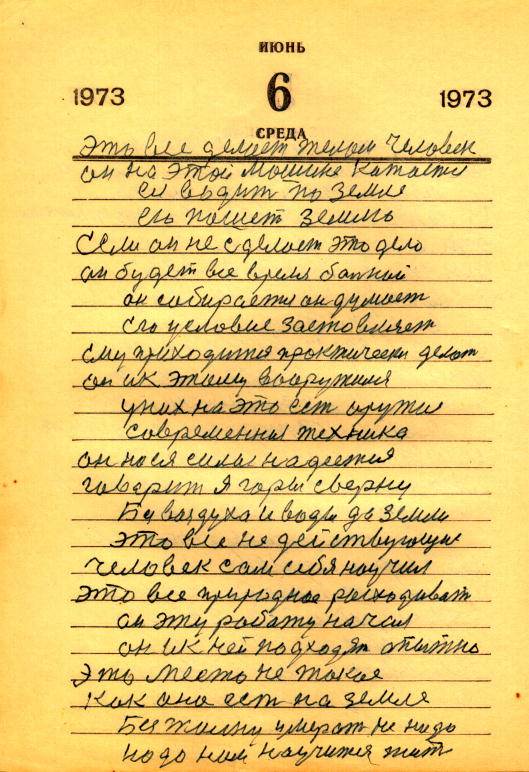 ИЮНЬ
1973 6 1973
СРЕДА
Это все делает телом человек
он на этой машине катаетя
ей водит по земле
ей пашет землю
Если он не сделает это дело
он будет все время
он собирается он думает
его условие заставляет
ему приходится практически делат
он и к этому вооружился
у них на это ест оружия
современня техника
он на свя силы надеется
говорит я горы сверну
Без воздуха и воды да земли
это все не действующие
человек сам себя научил
это все природное расходиват
он эту работу начал
он и к ней подходят опытно
Это место не такое
как оно ест на земле
Без жизни умерат не надо
надо нам научится жит